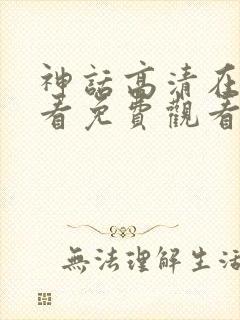 神話高清在
看免費觀看
無法理解生活